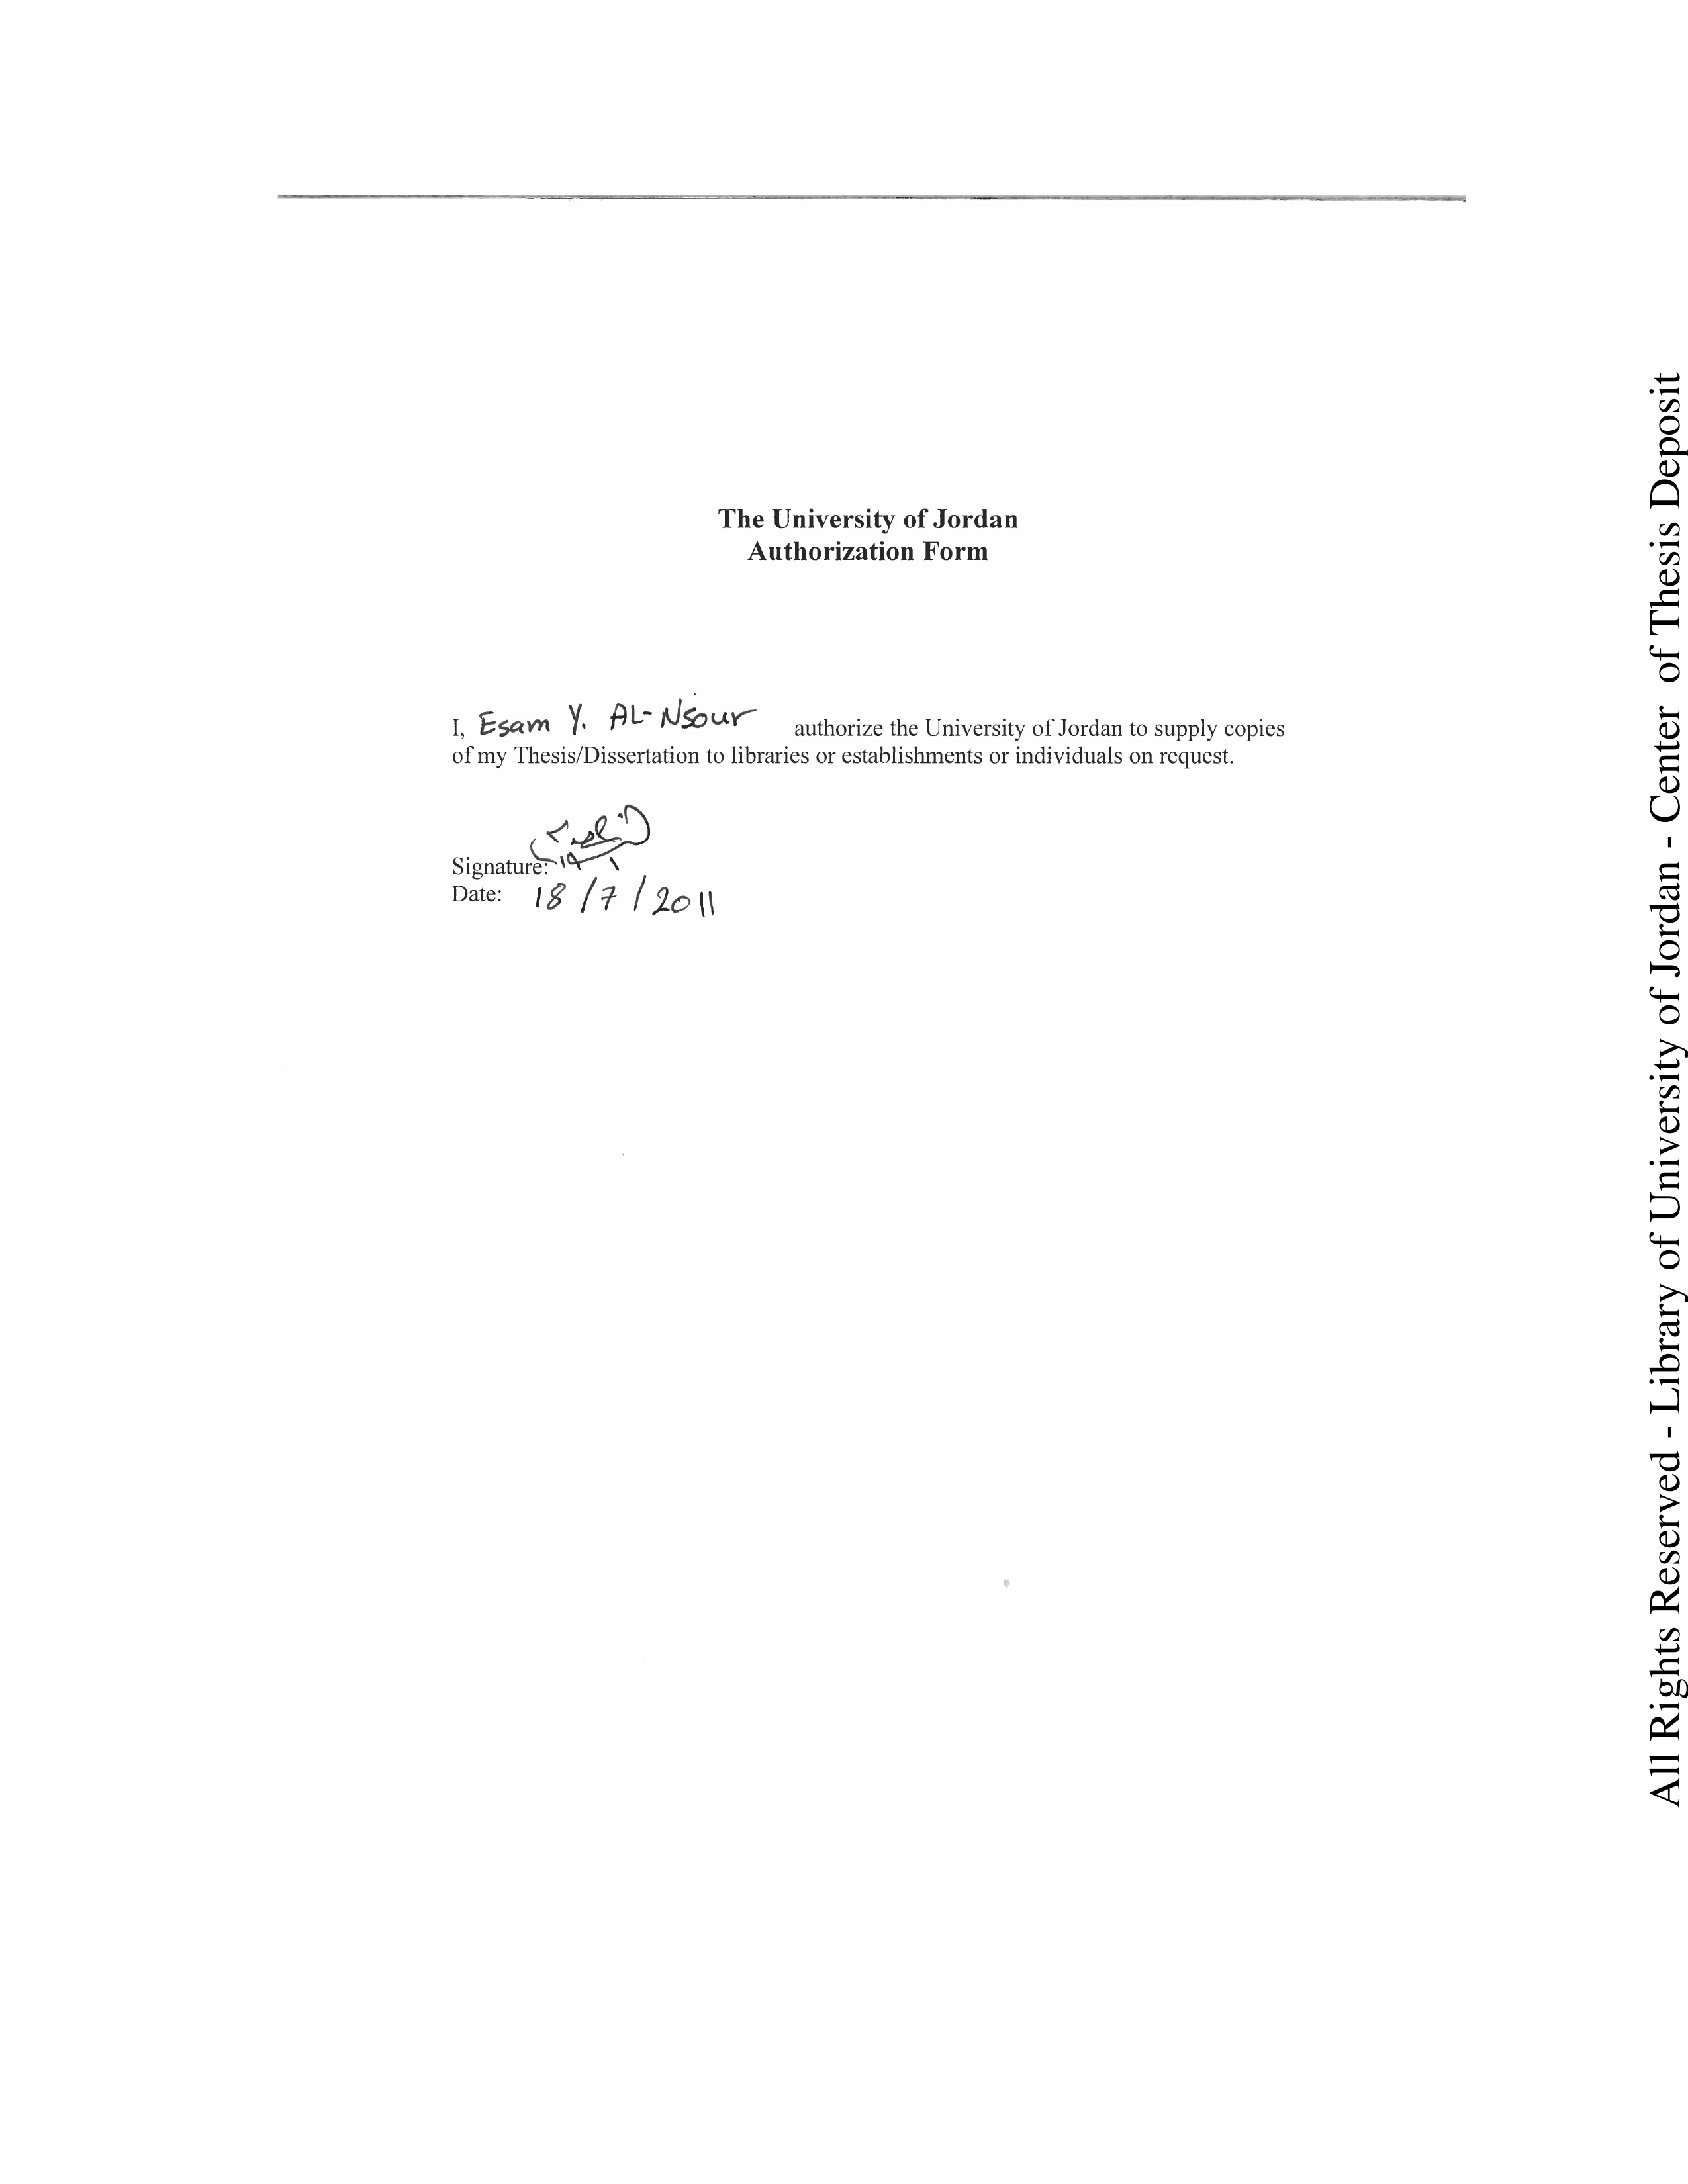 The University of Jordan
Authorization Form
I, Esam Y. AL-Nsour authorize the University of Jordan to supply copies
of my Thesis/Dissertation to libraries or establishments or individuals on request.
Signature:
Date: 18/7/2011
All Rights Reserved - Library of University of Jordan - Center of Thesis Deposit